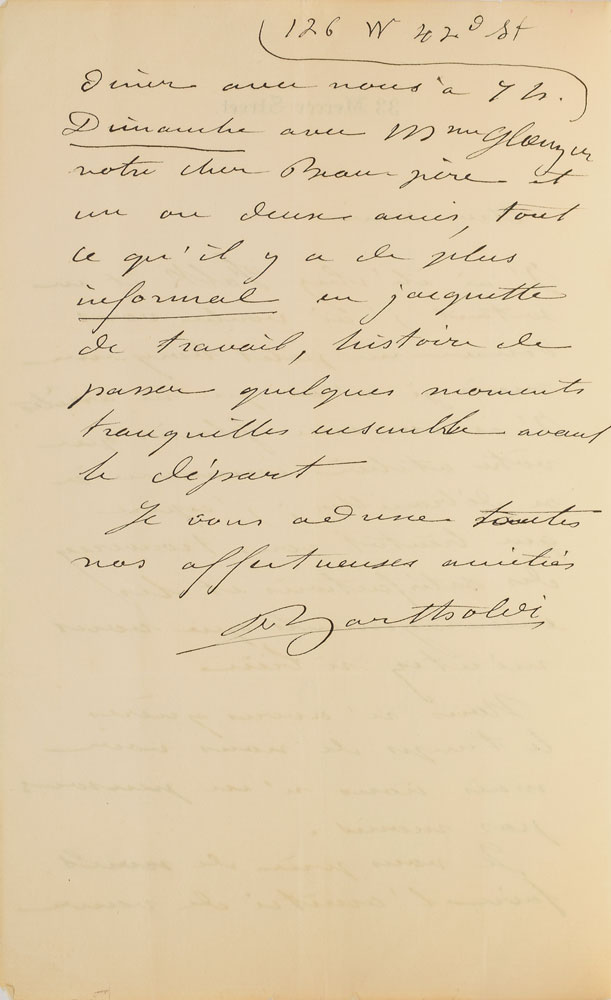 126 W 42d St
diner avec nous à 7 h.
Dimanche avec Mme Glaenzer
votre cher Beau père et
un ou deux amis, tout
ce qu'il y a de plus
informal en jacquette
de travail, histoire de
passer quelques moments
tranquilles ensemble avant
le départ
Je vous adresse toutes
nos affectueuses amitiés
Bartholdi